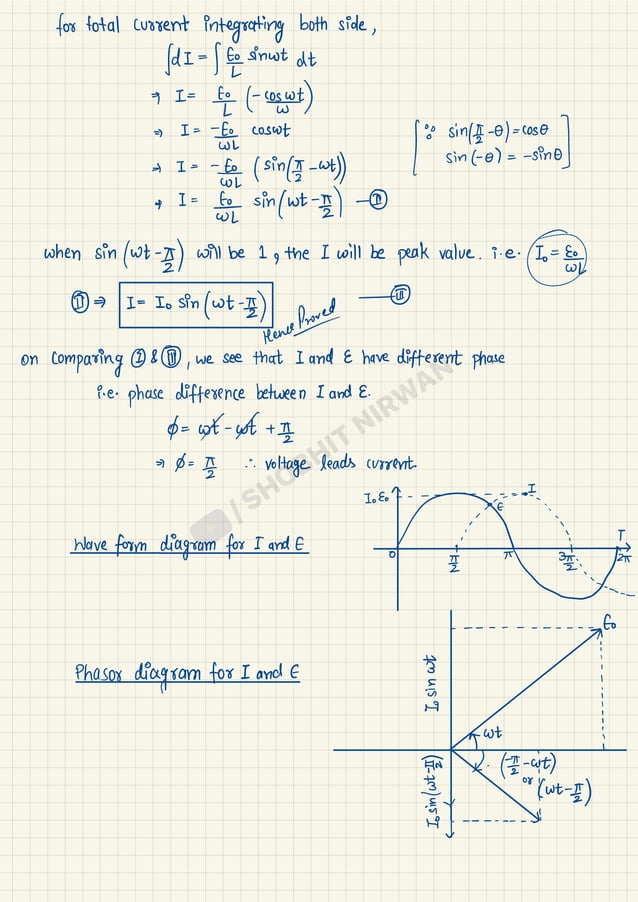 for total current integrating both side,
∫dI = ∫ E₀/L sinωt dt
⇒ I = E₀/L (-cosωt/ω)
⇒ I = -E₀/ωL cosωt
[∵ sin(π/2-θ) = cosθ
sin(-θ) = -sinθ]
⇒ I = -E₀/ωL (sin(π/2-ωt))
⇒ I = E₀/ωL sin(ωt-π/2) —Ⓘ
when sin(ωt-π/2) will be 1, the I will be peak value. i.e. I₀ = E₀/ωL
Ⅱ ⇒ I = I₀ sin(ωt-π/2) —Ⅲ
Hence Proved
on comparing Ⅰ & Ⅲ, we see that I and E have different phase
i.e. phase difference between I and E.
ϕ = ωt - ωt + π/2
⇒ ϕ = π/2 ∴ voltage leads current.
/ SHOBHIT NIRWAN
Wave form diagram for I and E
I₀E₀
I
E
T
0 π/2 π 3π/2 2π
Phasor diagram for I and E
E₀
I₀ sin ωt
ωt
(-π/2-ωt)
or (ωt-π/2)
I₀ sin(ωt-π/2)